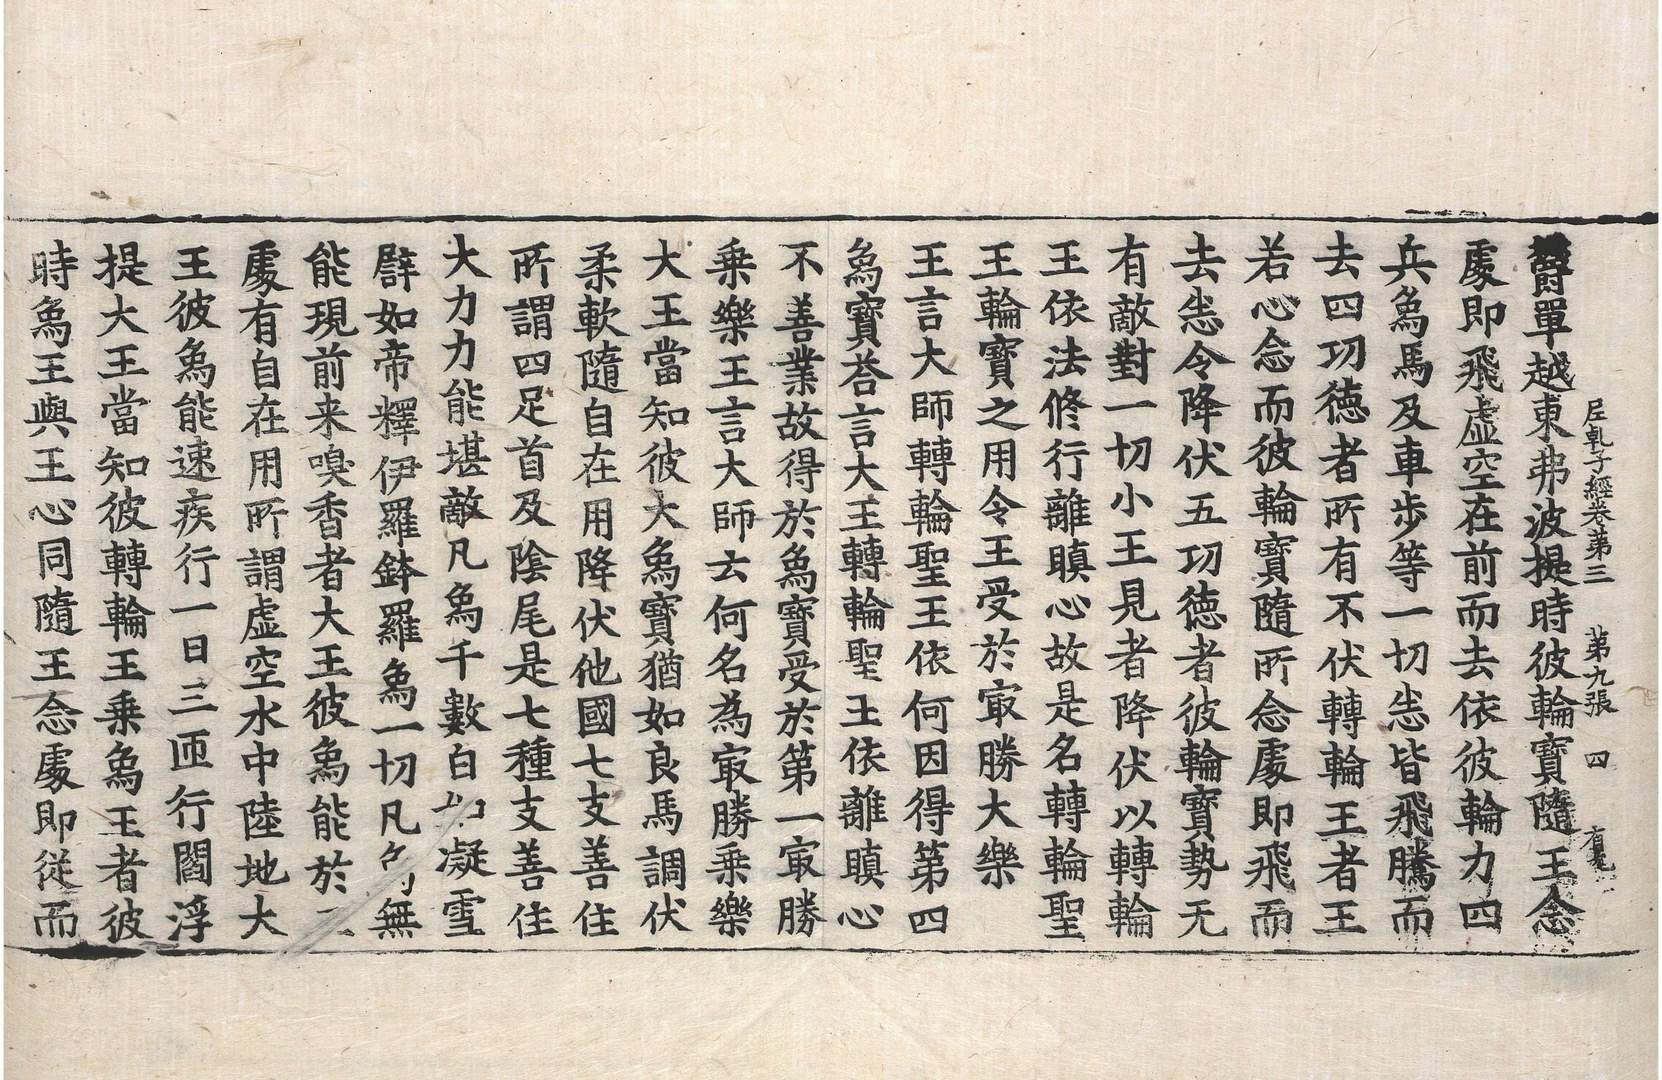 尼乹子經卷苐三　苐九張　四
欝單越東弗波提時彼輪寶隨王念
處即飛虛空在前而去依彼輪力四
兵象馬及車步等一切悉皆飛騰而
去四功德者所有不伏轉輪王者王
若心念而彼輪寶隨所念處即飛而
去悉令降伏五功德者彼輪寶勢无
有敵對一切小王見者降伏以轉輪
王依法修行離瞋心故是名轉輪聖
王輪寶之用令王受於㝡勝大樂
王言大師轉輪聖王依何因得第四
象寶荅言大王轉輪聖王依離瞋心
不善業故得於象寶受於第一㝡勝
乘樂王言大師云何名為㝡勝乘樂
大王當知彼大象寶猶如良馬調伏
柔軟隨自在用降伏他國七支善住
所謂四足首及陰尾是七種支善住
大力力能堪敵凡象千數白如凝雪
譬如帝釋伊羅鉢羅象一切凡象無
能現前来嗅香者大王彼象能於三
處有自在用所謂虛空水中陸地大
王彼象能速疾行一日三匝行閻浮
提大王當知彼轉輪王乘象王者彼
時象王與王心同隨王念處即從而